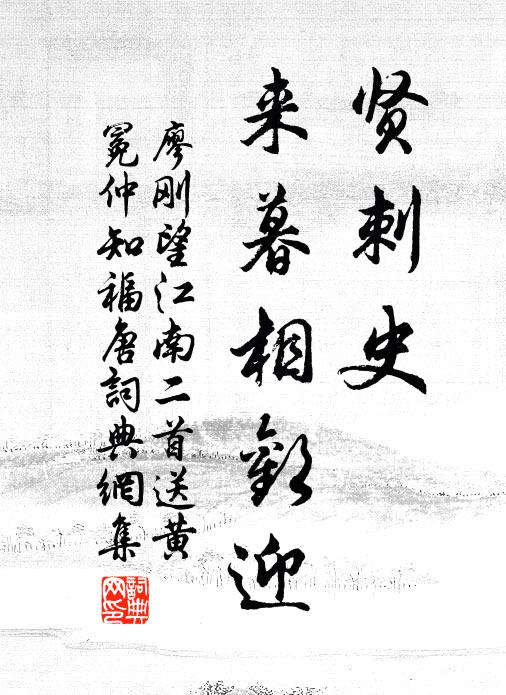 贤刺史
来暮相歡迎
廖刚望江南二首送黄
冕仲知福唐詞典網集
詞典网印